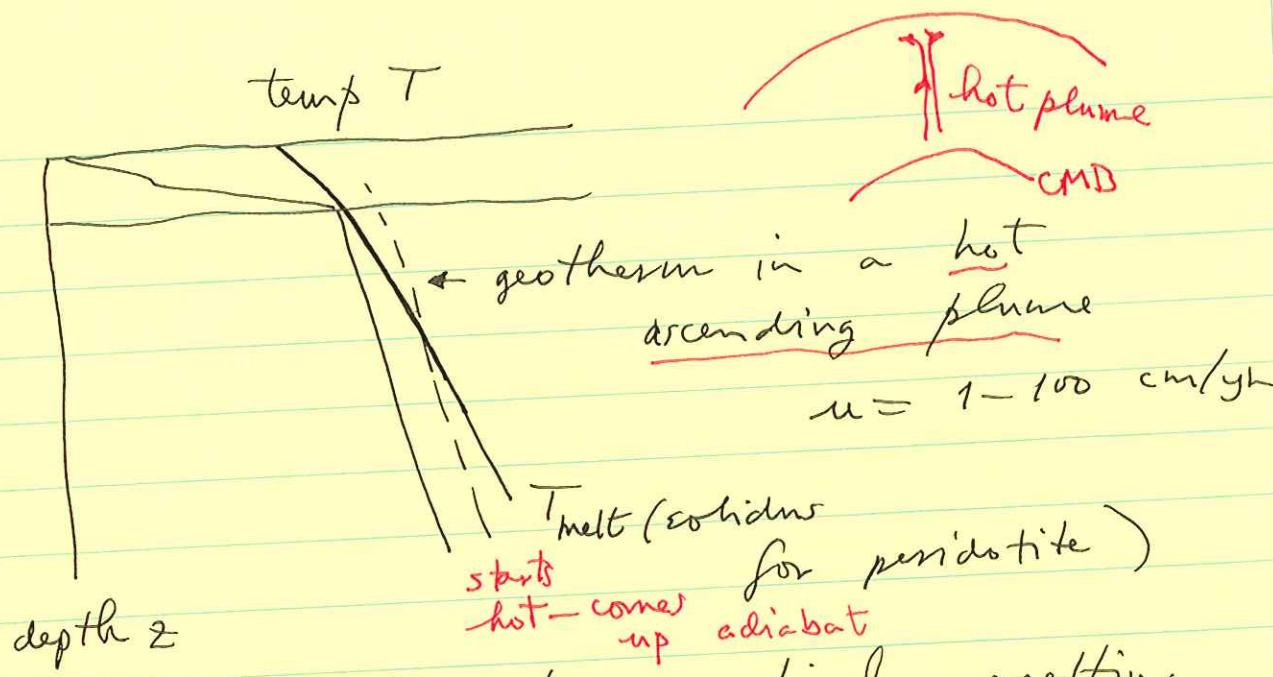 temp T
hot plume
CMB
geotherm in a hot
ascending plume
u = 1-100 cm/yr
T melt (solidus
for peridotite)
starts
hot - comes
up adiabat
depth z
melting